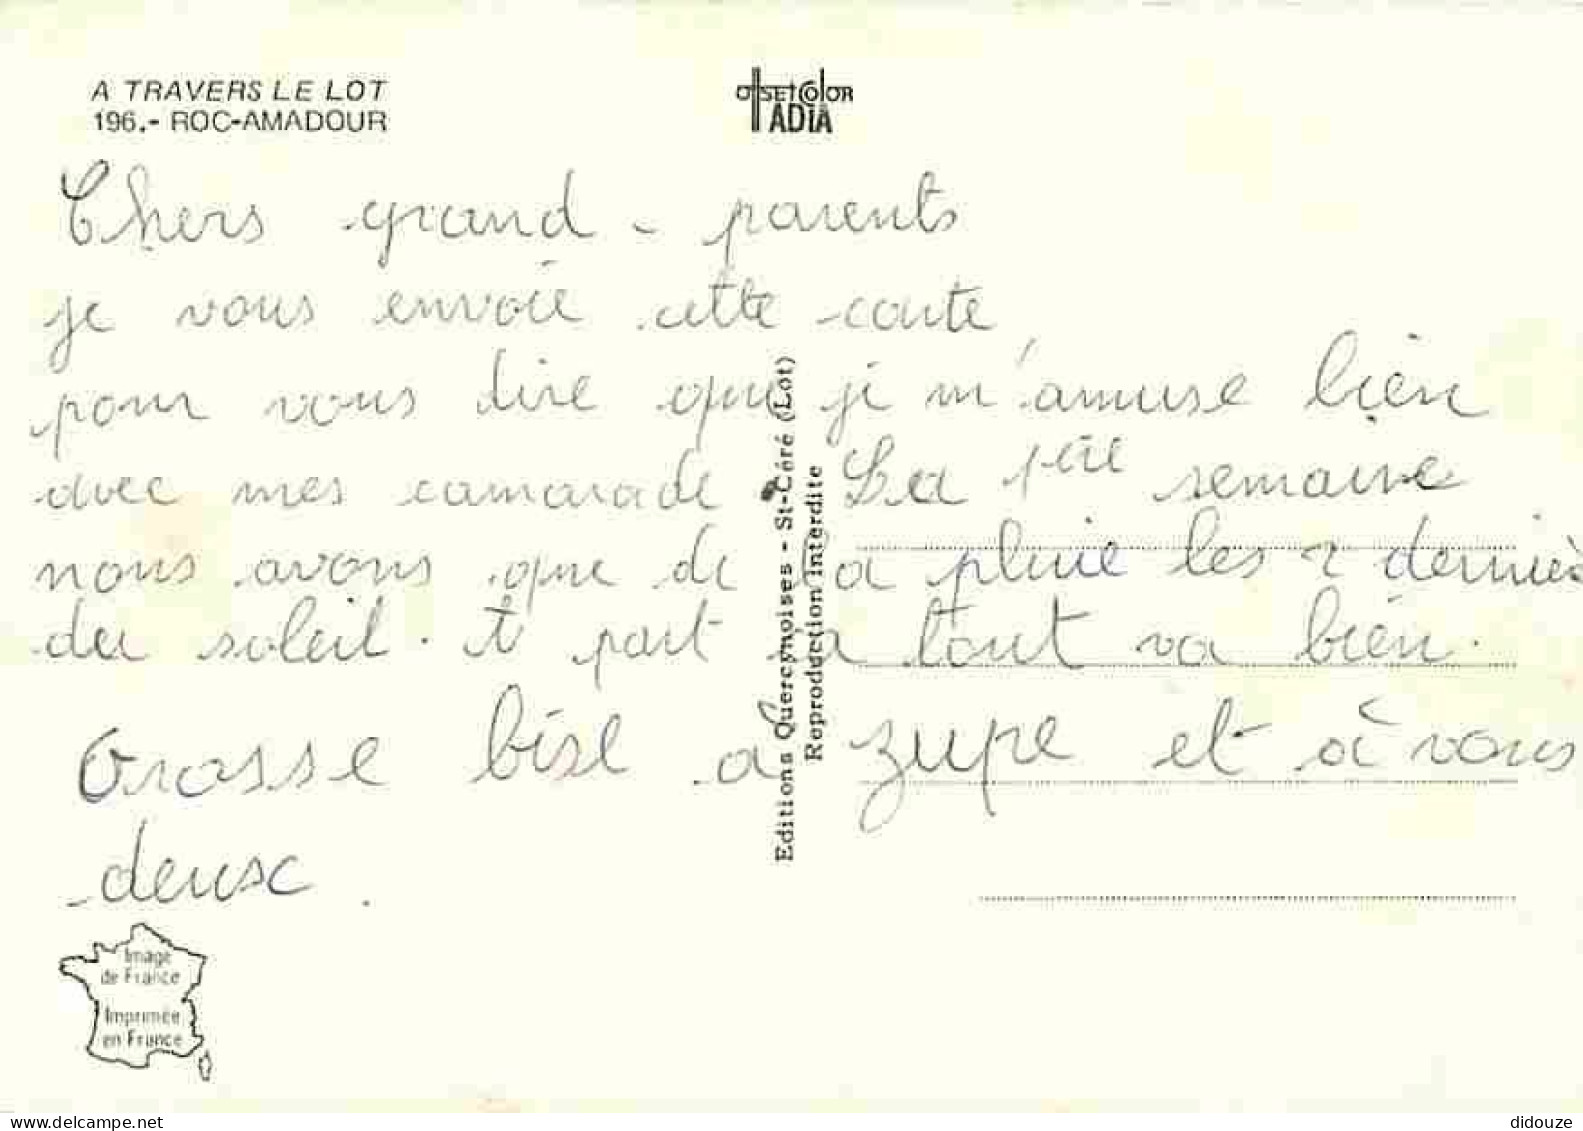 A TRAVERS LE LOT
196.- ROC-AMADOUR
offset color
IADIA
Chers grand - parents
je vous envoie cette carte
pour vous dire que je m'amuse bien
avec mes camarade. La 1ère semaine
nous avons que de la pluie les 2 derniès
du soleil. à part ça tout va bien.
Grosse bise à zupe et à vous
deuse.
Editions Quercynoises - St-Céré (Lot)
Reproduction interdite
Image
de France
Imprimée
en France
www.delcampe.net
didouze